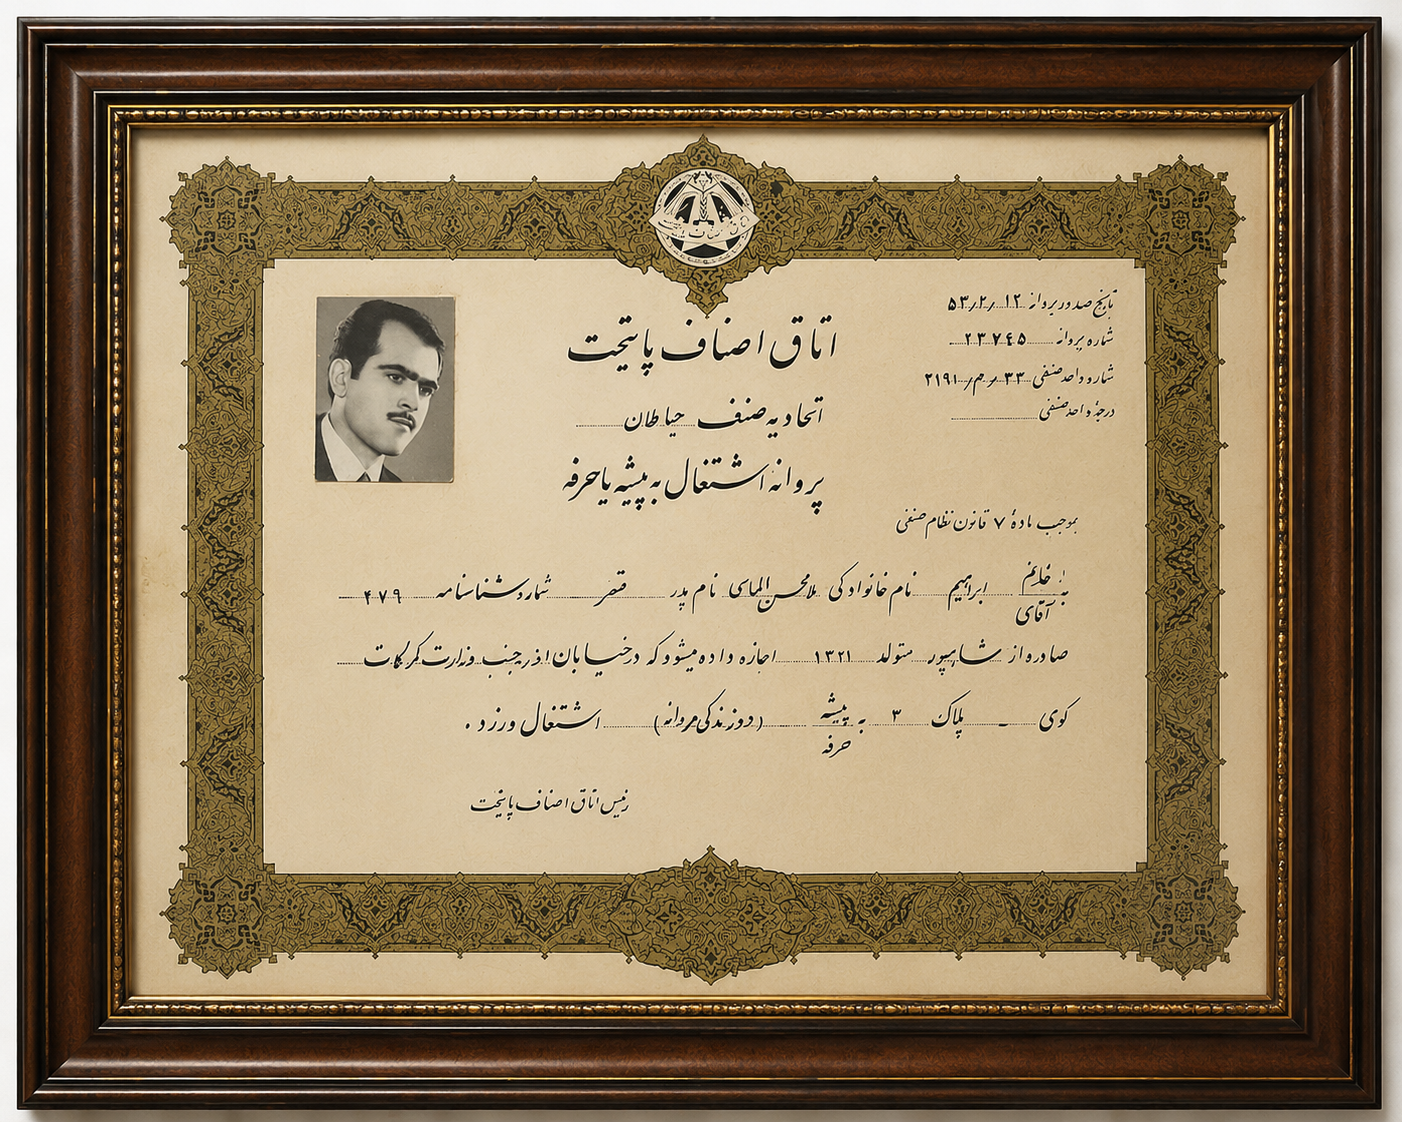 تاریخ صدور پروانه ۱۲/۲/۵۳
شماره پروانه ۲۳۷۴۵
شماره واحد صنفی ۳۳/م/۲۱۹۱
درجهٔ واحد صنفی
اتاق اصناف پایتخت
اتحادیه صنف خیاطان
پروانه اشتغال به پیشه یا حرفه
بموجب مادهٔ ۷ قانون نظام صنفی
به خانم
آقای ابراهیم نام خانوادگی ملامحسن الماسی نام پدر شماره شناسنامه ۴۷۹
صادره از شاهپور متولد ۱۳۲۱ اجازه داده میشود که در خیابان اذر جنب وزارت گمرکات
کوی - پلاک ۳ به پیشه
حرفه (دوزندگی مردانه) اشتغال ورزد .
رئیس اتاق اصناف پایتخت